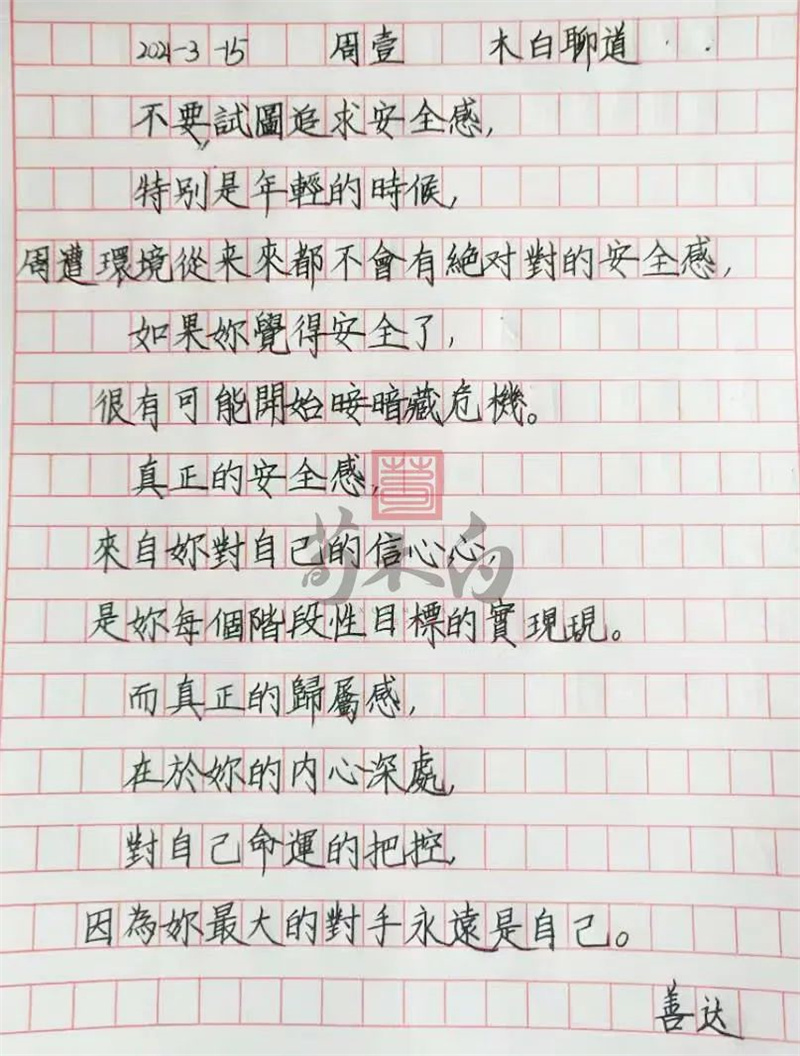 2021-3-15 周壹 木白聊道
不要試圖追求安全感，
特别是年輕的時候，
周遭環境從来來都不會有絕对對的安全感，
如果妳覺得安全了，
很有可能開始暗藏危機。
真正的安全感，
來自妳對自己的信心心，
是妳每個階段性目標的實現現。
而真正的歸屬感，
在於妳的内心深處，
對自己命運的把控，
因為妳最大的對手永遠是自己。
善达